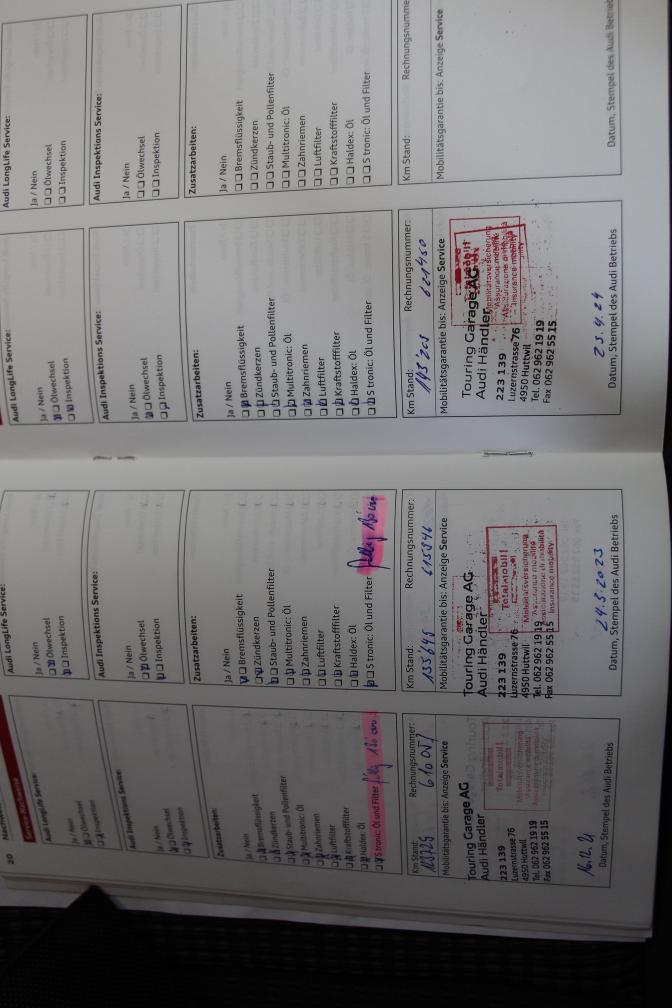 20
Service-Nachweise
Audi LongLife Service:
Ja / Nein
Ölwechsel
Inspektion
Audi Inspektions Service:
Ja / Nein
Ölwechsel
Inspektion
Zusatzarbeiten:
Ja / Nein
Bremsflüssigkeit
Zündkerzen
Staub- und Pollenfilter
Multitronic: Öl
Zahnriemen
Luftfilter
Kraftstofffilter
Haldex: Öl
S tronic: Öl und Filter
Km Stand: Rechnungsnummer:
Mobilitätsgarantie bis: Anzeige Service
Touring Garage AG
Audi Händler
223 139
Luzernstrasse 76
4950 Huttwil
Tel. 062 962 19 19
Fax 062 962 55 15
Totalmobil!
16.12.21
Datum, Stempel des Audi Betriebs
Audi LongLife Service:
Ja / Nein
Ölwechsel
Inspektion
Audi Inspektions Service:
Ja / Nein
Ölwechsel
Inspektion
Zusatzarbeiten:
Ja / Nein
Bremsflüssigkeit
Zündkerzen
Staub- und Pollenfilter
Multitronic: Öl
Zahnriemen
Luftfilter
Kraftstofffilter
Haldex: Öl
S tronic: Öl und Filter
Km Stand: Rechnungsnummer:
135'645 615346
Mobilitätsgarantie bis: Anzeige Service
Touring Garage AG
Audi Händler
223 139
Luzernstrasse 76
4950 Huttwil
Tel. 062 962 19 19
Fax 062 962 55 15
Totalmobil!
Mobilitätsversicherung
Assurance mobilité
Assicurazione di mobilità
Insurance mobility
24.5.2023
Datum, Stempel des Audi Betriebs
Audi LongLife Service:
Ja / Nein
Ölwechsel
Inspektion
Audi Inspektions Service:
Ja / Nein
Ölwechsel
Inspektion
Zusatzarbeiten:
Ja / Nein
Bremsflüssigkeit
Zündkerzen
Staub- und Pollenfilter
Multitronic: Öl
Zahnriemen
Luftfilter
Kraftstofffilter
Haldex: Öl
S tronic: Öl und Filter
Km Stand: Rechnungsnummer:
145'205 621450
Mobilitätsgarantie bis: Anzeige Service
Touring Garage AG
Audi Händler
223 139
Luzernstrasse 76
4950 Huttwil
Tel. 062 962 19 19
Fax 062 962 55 15
Mobilitätsversicherung
Assurance mobilité
Assicurazione di mobilità
Insurance mobility
23.4.24
Datum, Stempel des Audi Betriebs
Audi LongLife Service:
Ja / Nein
Ölwechsel
Inspektion
Audi Inspektions Service:
Ja / Nein
Ölwechsel
Inspektion
Zusatzarbeiten:
Ja / Nein
Bremsflüssigkeit
Zündkerzen
Staub- und Pollenfilter
Multitronic: Öl
Zahnriemen
Luftfilter
Kraftstofffilter
Haldex: Öl
S tronic: Öl und Filter
Km Stand: Rechnungsnumme
Mobilitätsgarantie bis: Anzeige Service
Datum, Stempel des Audi Betrieb